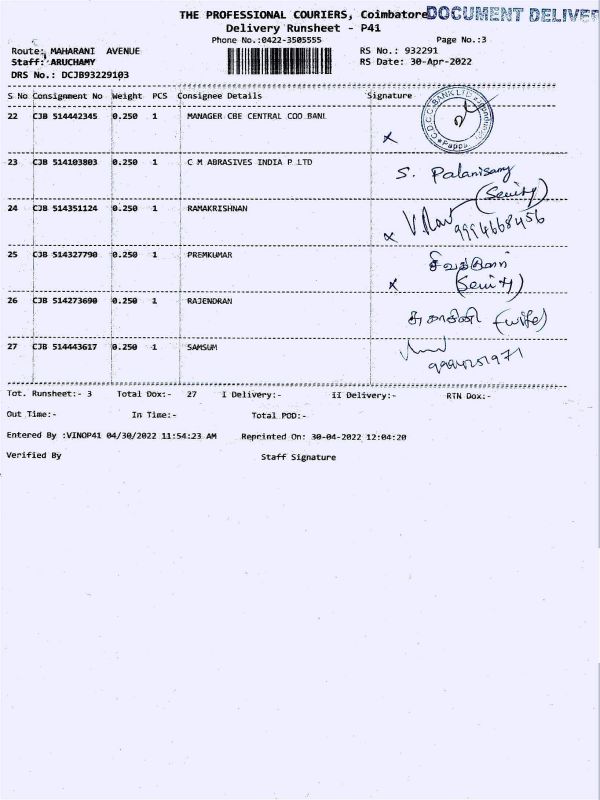 THE PROFESSIONAL COURIERS, Coimbatore DOCUMENT DELIVER
Delivery Runsheet - P41
Phone No.:0422-3505555 Page No.:3
Route: MAHARANI AVENUE RS No.: 932291
Staff: ARUCHAMY RS Date: 30-Apr-2022
DRS No.: DCJB93229103
S No Consignment No Weight PCS Consignee Details Signature
22 CJB 514442345 0.250 1 MANAGER CBE CENTRAL COO BANL
x
23 CJB 514103803 0.250 1 C M ABRASIVES INDIA P LTD S. Palanisamy
24 CJB 514351124 0.250 1 RAMAKRISHNAN
x 9994668456
25 CJB 514327790 0.250 1 PREMKUMAR
x
26 CJB 514273690 0.250 1 RAJENDRAN (wife)
27 CJB 514443617 0.250 1 SAMSUM
Tot. Runsheet:- 3 Total Dox:- 27 I Delivery:- ii Delivery:- RTN Dox:-
Out Time:- In Time:- Total POD:-
Entered By :VINOP41 04/30/2022 11:54:23 AM Reprinted On: 30-04-2022 12:04:20
Verified By Staff Signature